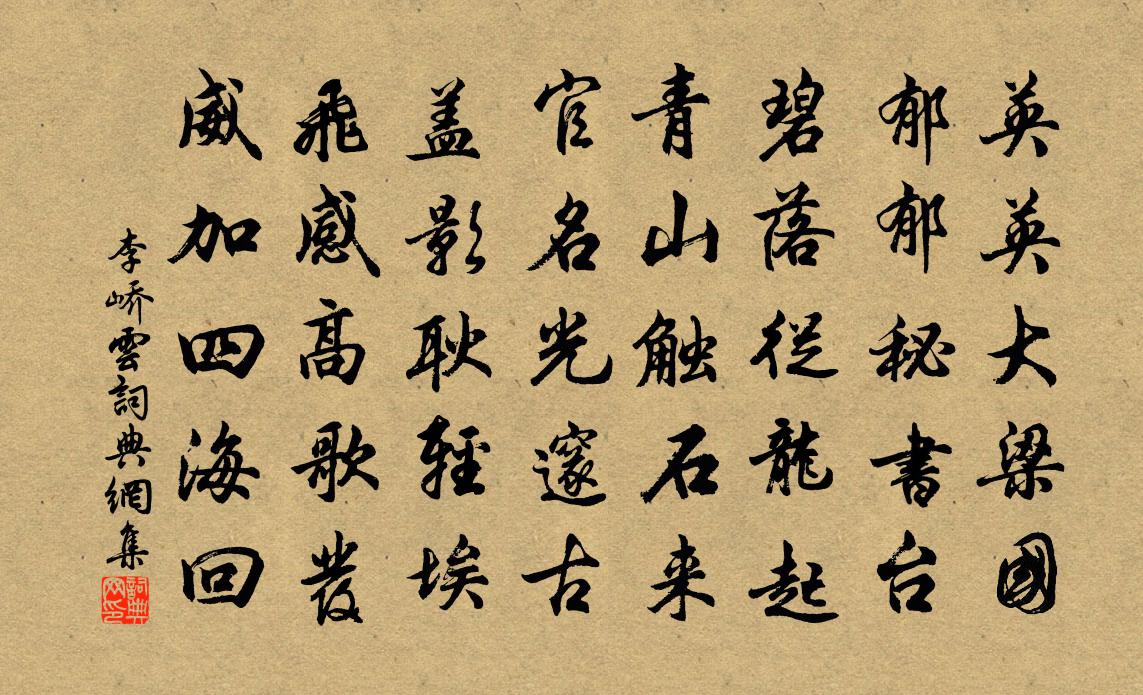 英英大梁國
郁郁秘書台
碧落從龍起
青山触石来
官名光邃古
盖影耿輕埃
飛感高歌發
威加四海回
李嶠雲詞典網集
詞典网印